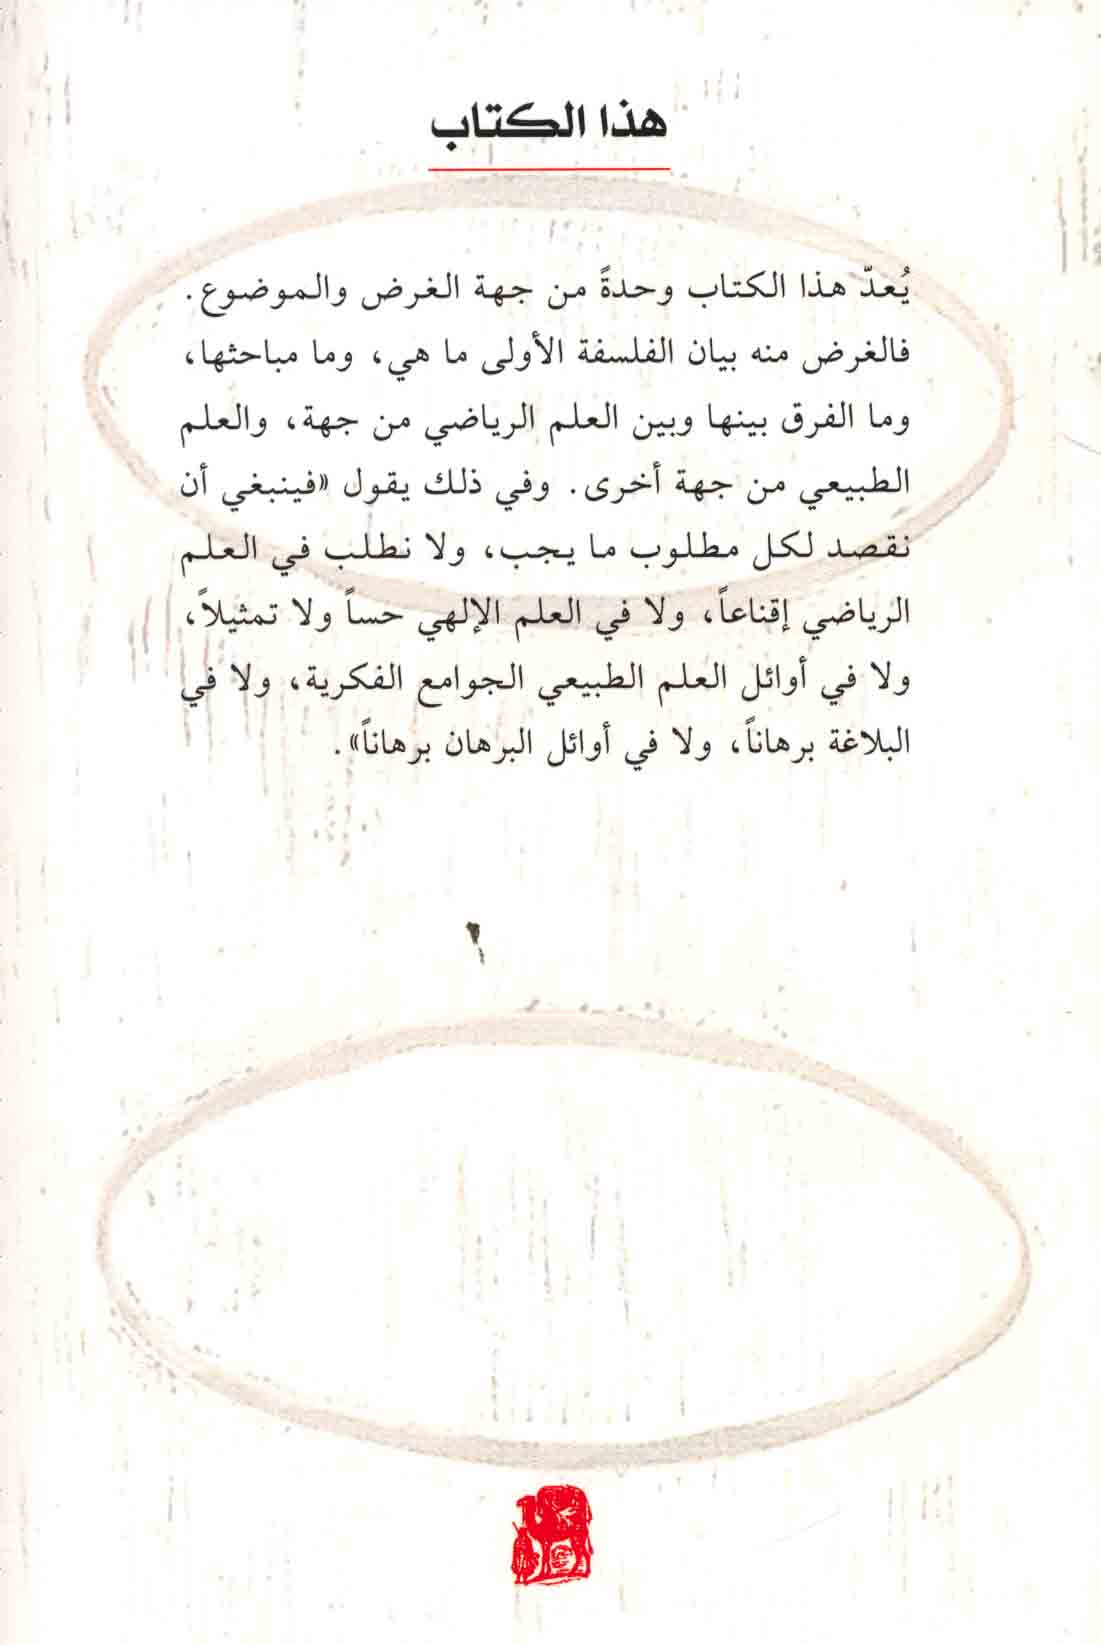 هذا الكتاب
يُعدّ هذا الكتاب وحدةً من جهة الغرض والموضوع.
فالغرض منه بيان الفلسفة الأولى ما هي، وما مباحثها،
وما الفرق بينها وبين العلم الرياضي من جهة، والعلم
الطبيعي من جهة أخرى. وفي ذلك يقول «فينبغي أن
نقصد لكل مطلوب ما يجب، ولا نطلب في العلم
الرياضي إقناعاً، ولا في العلم الإلهي حساً ولا تمثيلاً،
ولا في أوائل العلم الطبيعي الجوامع الفكرية، ولا في
البلاغة برهاناً، ولا في أوائل البرهان برهاناً».